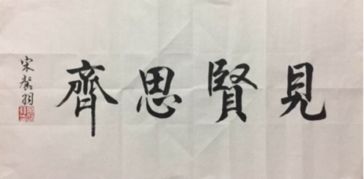 見賢思齊
宋馨羽